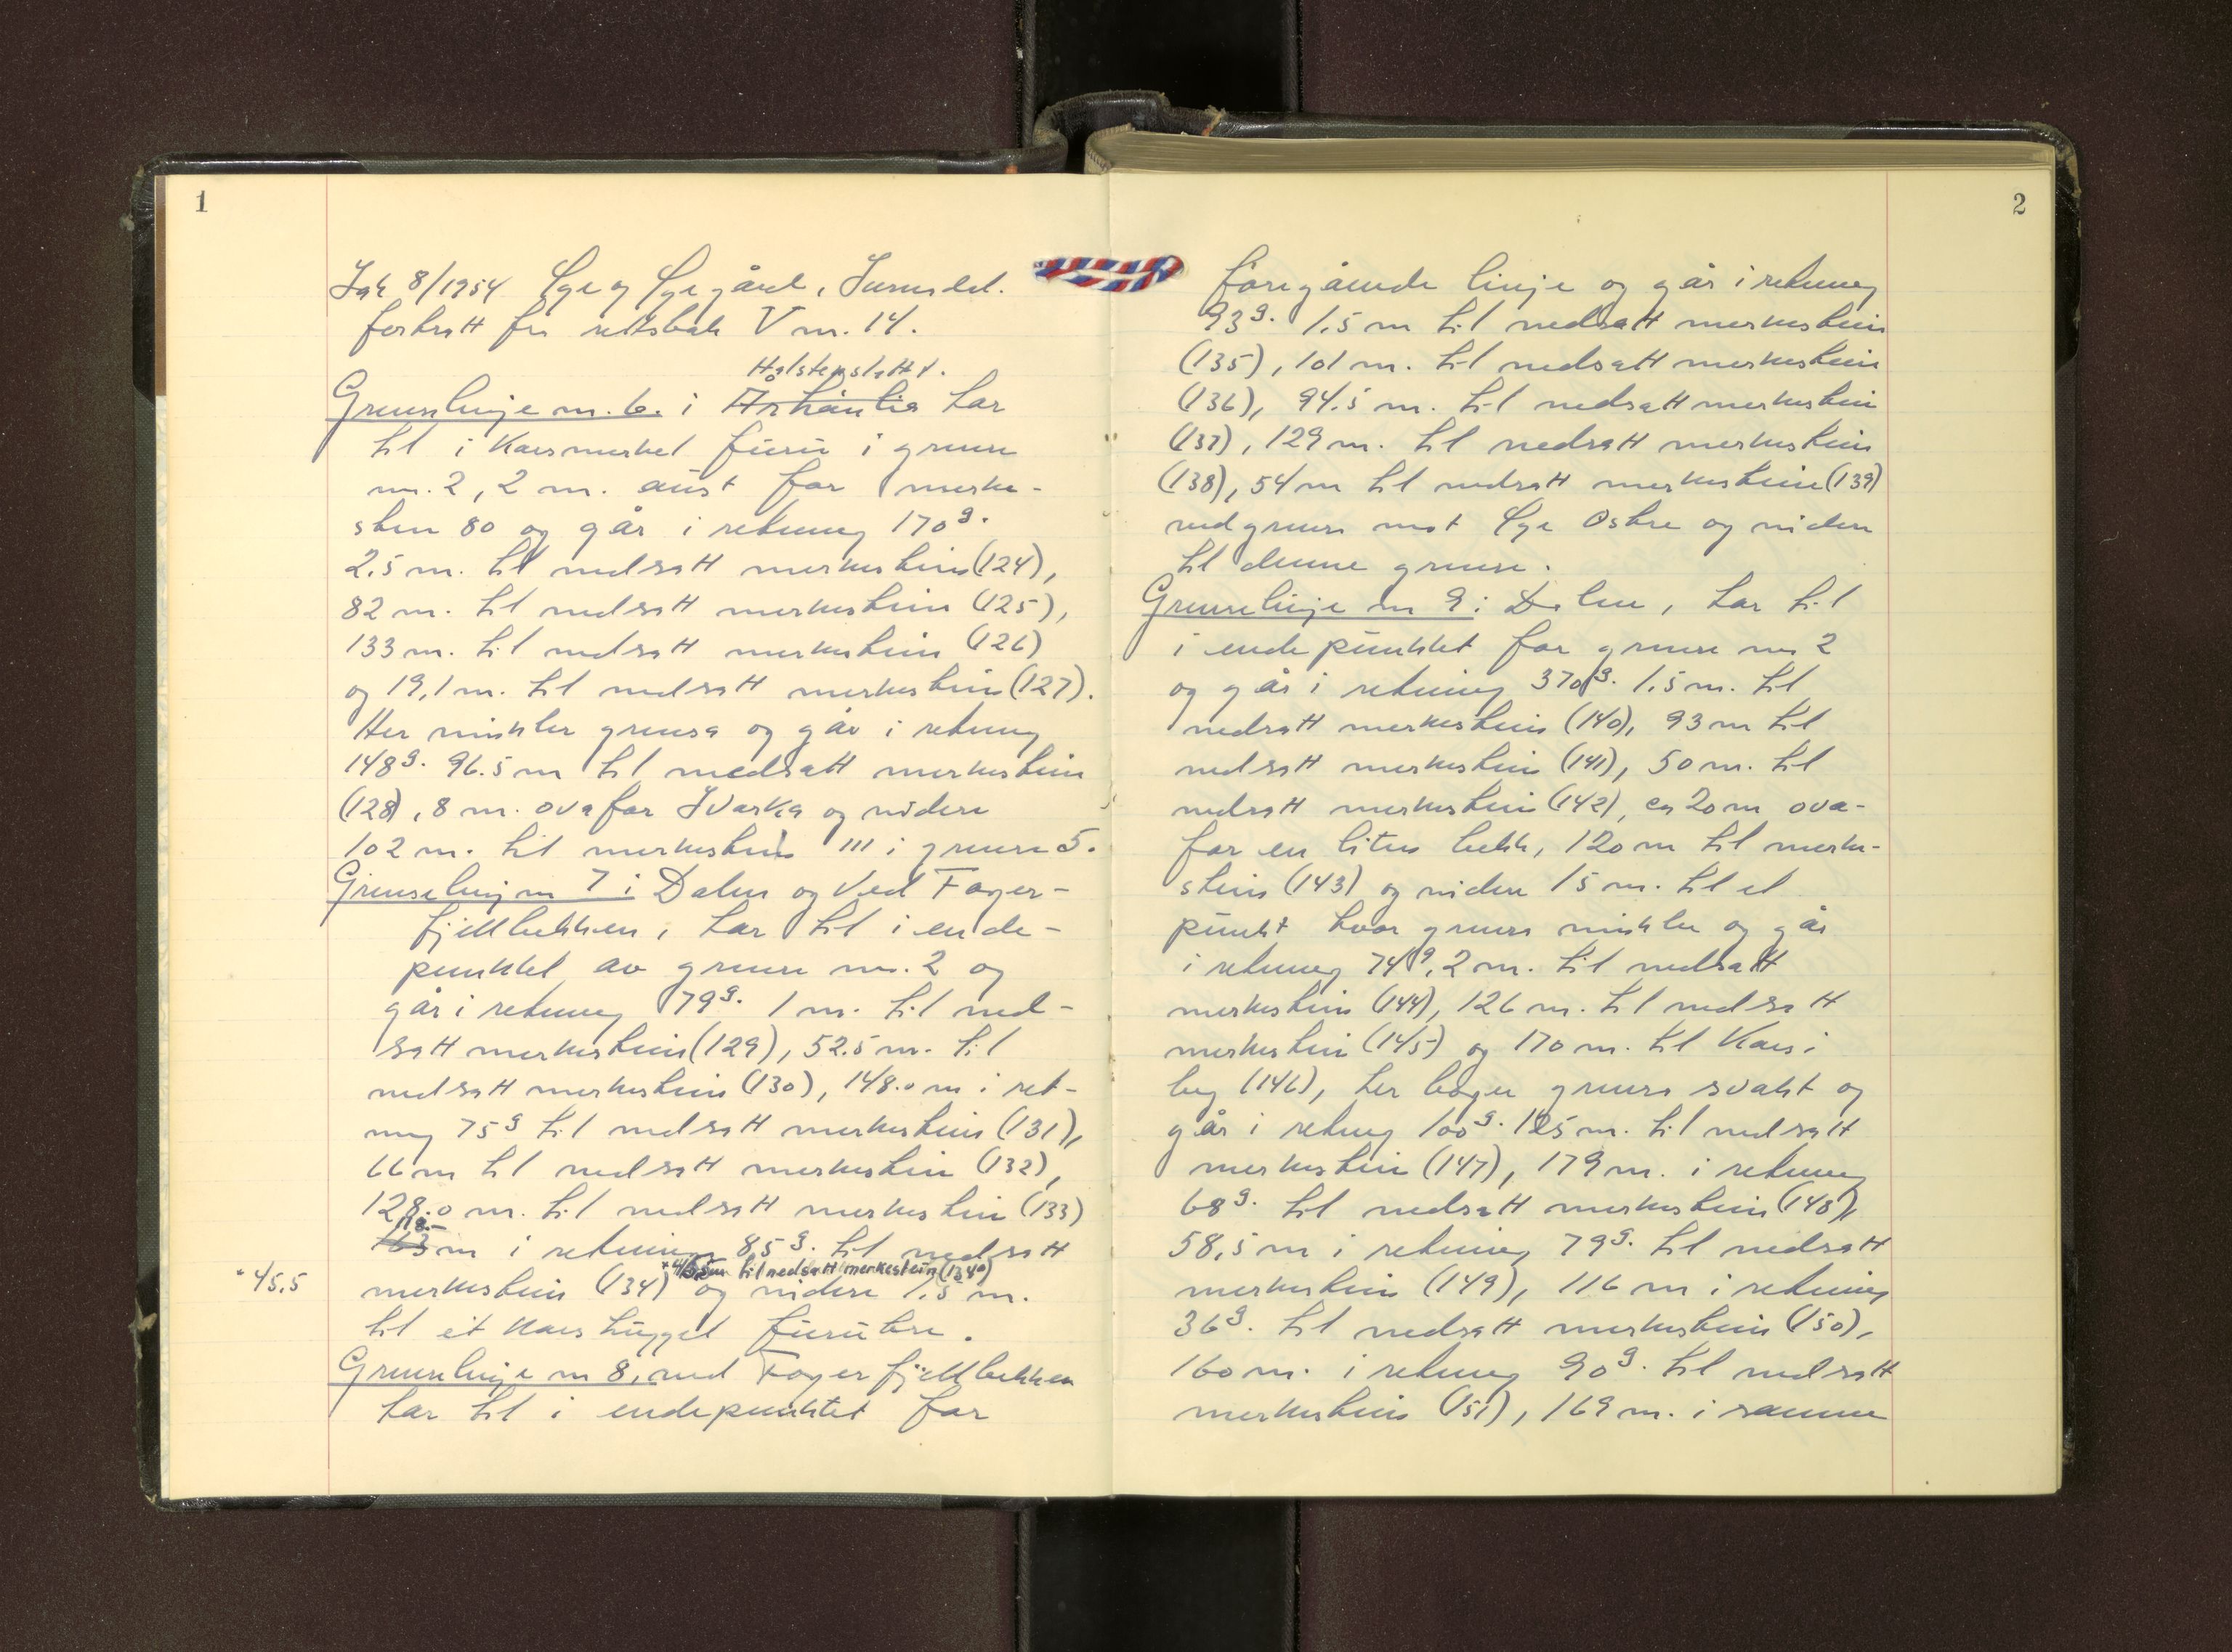 1
Sak 8/1954 Lye og Lye gård, Surnadal.
fortsatt fra rettsbok V nr. 14.
Halstenslættet.
Grenselinje nr. 6. i Århånlia tar
til i krossmerket furu i grense
nr. 2, 2 m. aust for merke-
sten 80 og går i retning 170g.
2.5 m. til nedsatt merkestein (124),
82 m. til nedsatt merkestein (125),
133 m. til nedsatt merkestein (126)
og 19,1 m. til nedsatt merkestein (127).
Her vinkler grensa og går i retning
148g. 96.5 m til nedsatt merkestein
(128), 8 m. ovafor og videre
102 m. til merkestein 111 i grense 5.
Grenselinje nr 7 i Dalen og ved Fager-
fjellbekken, tar til i ende-
punktet av grense nr. 2 og
går i retning 79g. 1 m. til ned-
satt merkestein (129), 52.5 m. til
nedsatt merkestein (130), 148.0 m i ret-
ning 75g til nedsatt merkestein (131),
66 m til nedsatt merkestein (132),
128.0 m. til nedsatt merkestein (133)
118.-
163 m i retning 85g. til nedsatt
* 45.5 m til nedsatt merkestein (134a)
* 45.5
merkestein (134) og videre 1.5 m.
til eit krosshugget furutre.
Grenselinje nr 8, ved Fagerfjellbekken
tar til i endepunktet for
2
foregående linje og går i retning
93g. 1.5 m til nedsatt merkestein
(135), 101 m. til nedsatt merkestein
(136), 94.5 m. til nedsatt merkestein
(137), 129 m. til nedsatt merkestein
(138), 54 m til nedsatt merkestein (139)
ved grensa mot Lye Østre og videre
til denne grense.
Grenselinje nr 9 i Dalen, tar til
i endepunktet for grense nr 2
og går i retning 370g. 1.5 m. til
nedsatt merkestein (140), 93 m til
nedsatt merkestein (141), 50 m. til
nedsatt merkestein (142), ca 20 m ova-
for en liten bekk, 120 m til merke-
stein (143) og videre 15 m. til et
punkt hvor grensa vinkler og går
i retning 74g, 2 m. til nedsatt
merkestein (144), 126 m. til nedsatt
merkestein (145) og 170 m. til kors i
berg (146), her bøyer grensa svakt og
går i retning 100g. 125 m. til nedsatt
merkestein (147), 179 m. i retning
68g. til nedsatt merkestein (148),
58,5 m i retning 79g. til nedsatt
merkestein (149), 116 m i retning
36g. til nedsatt merkestein (150),
160 m. i retning 90g. til nedsatt
merkestein (151), 169 m. i samme